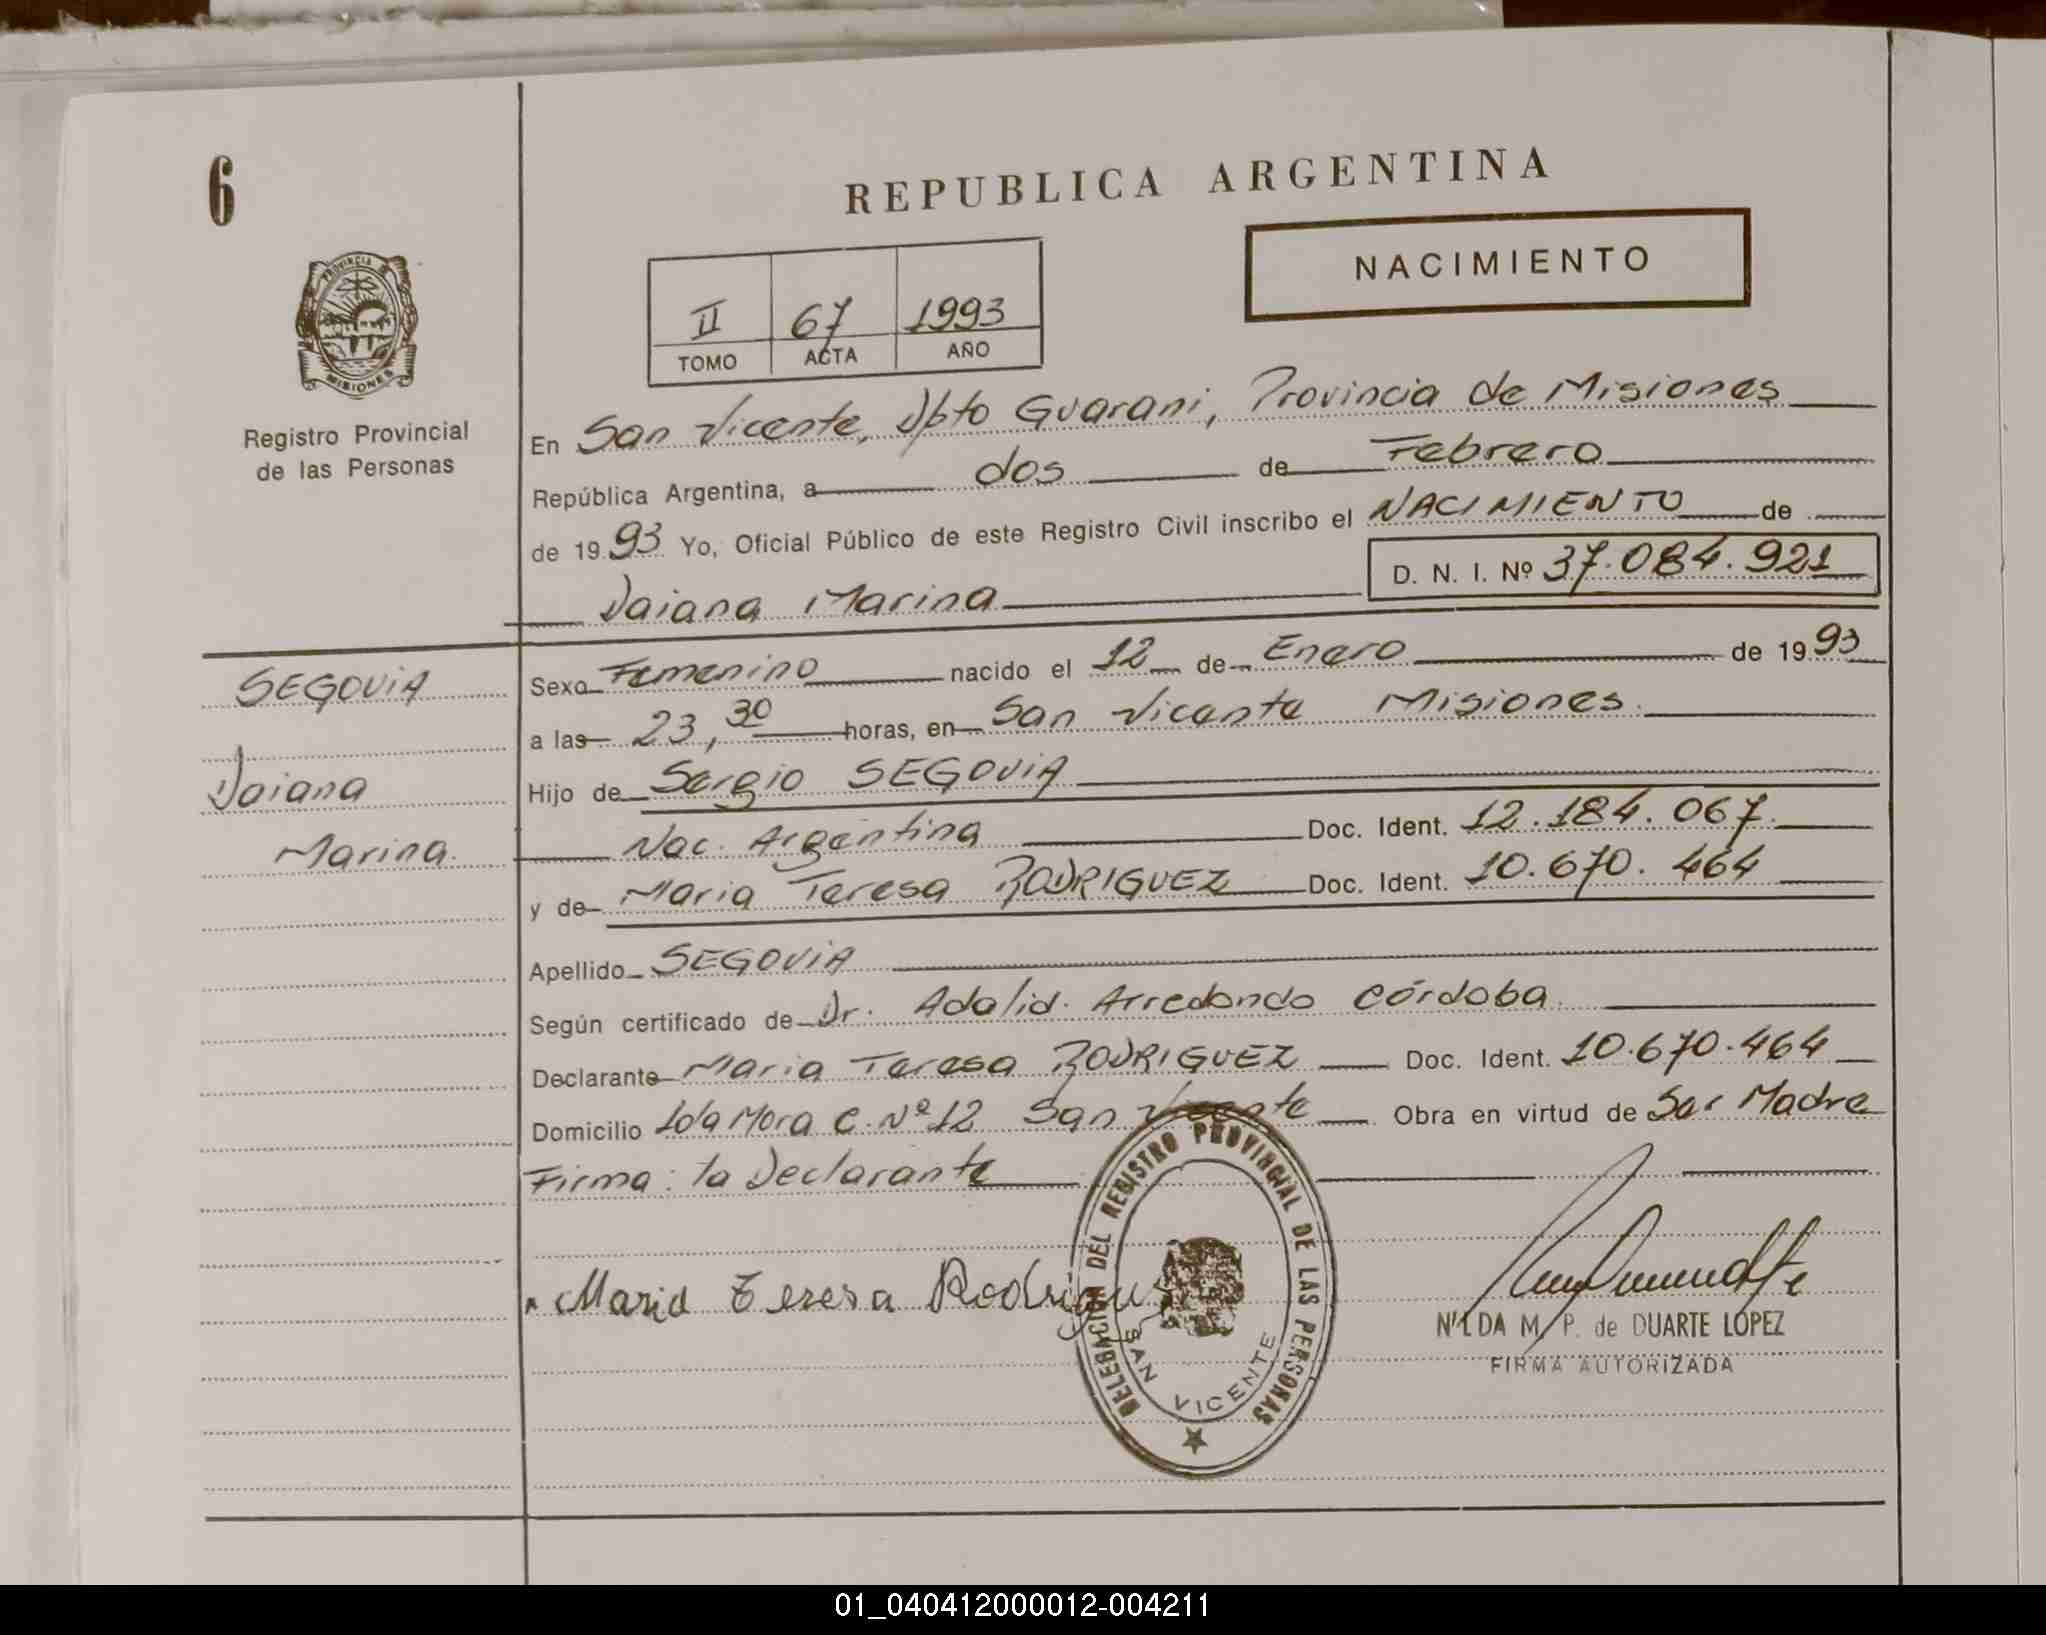 6
REPUBLICA ARGENTINA
NACIMIENTO
II 67 1993
TOMO ACTA AÑO
PROVINCIA DE
MISIONES
Registro Provincial
de las Personas
En San Vicente, Dpto Guarani, Provincia de Misiones
República Argentina, a dos de Febrero
de 1993 Yo, Oficial Público de este Registro Civil inscribo el NACIMIENTO de
Daiana Marina D. N. I. Nº 37.084.921
SEGOVIA
Daiana
Marina.
Sexo Femenino nacido el 12 de Enero de 1993
a las 23,30 horas, en San Vicente Misiones.
Hijo de Sergio SEGOVIA
Nac. Argentina Doc. Ident. 12.184.067.
y de Maria Teresa RODRIGUEZ Doc. Ident. 10.670.464
Apellido SEGOVIA
Según certificado de Dr. Adalid Arredondo Córdoba.
Declarante Maria Teresa RODRIGUEZ Doc. Ident. 10.670.464
Domicilio Mora C. Nº 12 San Vicente Obra en virtud de Ser Madre
Firma: la Declarante
Maria Teresa Rodrigu
DELEGACION DEL REGISTRO PROVINCIAL DE LAS PERSONAS
SAN VICENTE
NILDA M. P. de DUARTE LOPEZ
FIRMA AUTORIZADA
01_040412000012-004211